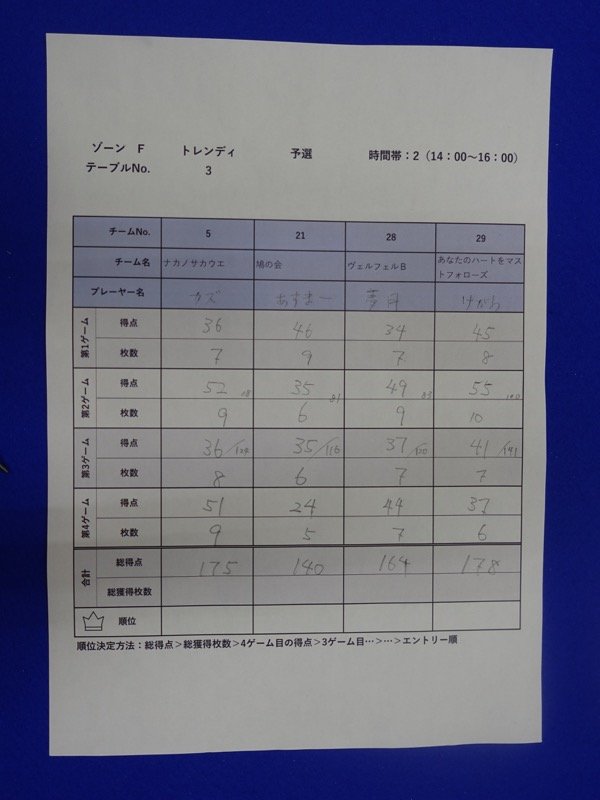 ゾーン F トレンディ 予選 時間帯：2（14：00～16：00）
テーブルNo. 3
チームNo. 5 21 28 29
チーム名 ナカノサカウエ 鳩の会 ヴェルフェルB あなたのハートをマス
トフォローズ
プレーヤー名 カズ あすまー 夢月 けがわ
第1ゲーム 得点 36 46 34 45
枚数 7 9 7 8
第2ゲーム 得点 52 88 35 81 49 83 55 100
枚数 9 6 9 10
第3ゲーム 得点 36/124 35/116 37/120 41/141
枚数 8 6 7 7
第4ゲーム 得点 51 24 44 37
枚数 9 5 7 6
合計 総得点 175 140 164 178
総獲得枚数
順位
順位決定方法：総得点＞総獲得枚数＞4ゲーム目の得点＞3ゲーム目…＞…＞エントリー順